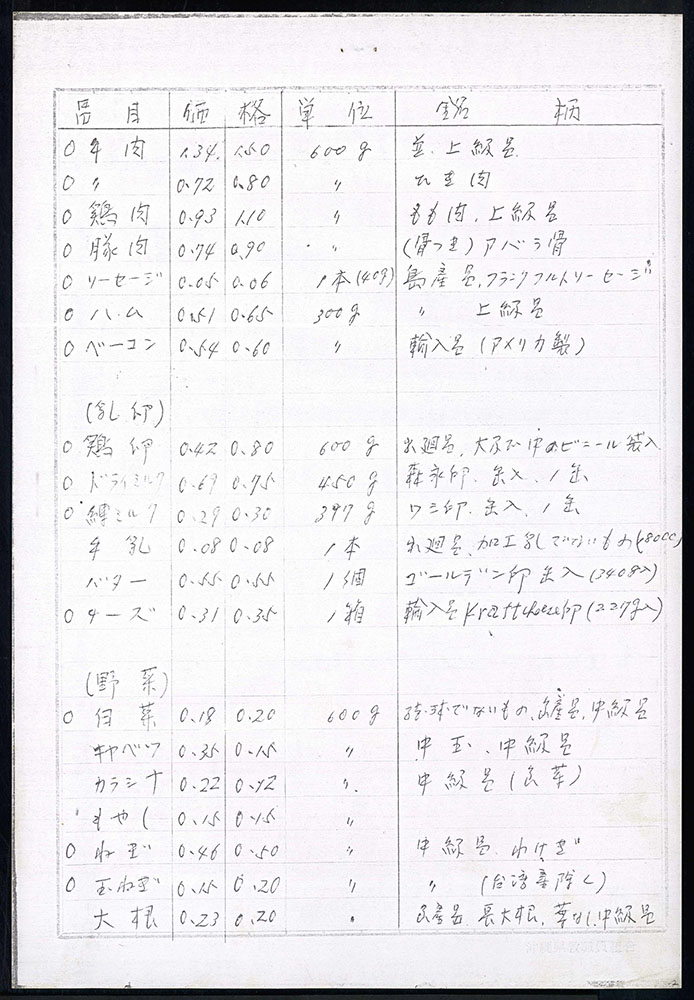 品目 価格 単位 銘柄
○ 牛肉 1.34 1.50 600g 並、上級品
○ 〃 0.72 0.80 〃 ひき肉
○ 鶏肉 0.93 1.10 〃 もも肉、上級品
○ 豚肉 0.74 0.90 〃 (骨つき)アバラ骨
○ ソーセージ 0.05 0.06 1本(40g) 島産品、フランクフルトソーセージ
○ ハム 0.51 0.65 300g 〃 上級品
○ ベーコン 0.54 0.60 〃 輸入品(アメリカ製)
(乳卵)
○ 鶏卵 0.42 0.80 600g 出廻品、大及び中のビニール袋入
○ ドライミルク 0.69 0.75 450g 森永印、缶入、1缶
○ 練ミルク 0.29 0.30 397g ワシ印、缶入、1缶
牛乳 0.08 0.08 1本 出廻品、加工乳でないもの(180CC)
バター 0.55 0.55 1個 ゴールデン印 缶入(340g入)
○ チーズ 0.31 0.35 1箱 輸入品 Kraft cheese印(227g入)
(野菜)
○ 白菜 0.18 0.20 600g 結球でないもの、島産品、中級品
キャベツ 0.35 0.15 〃 中玉、中級品
カラシナ 0.22 0.12 〃 中級品(島菜)
もやし 0.15 0.15 〃
○ ねぎ 0.46 0.50 〃 中級品、わけぎ
○ 玉ねぎ 0.15 0.20 〃 〃 (台湾産除く)
大根 0.23 0.20 島産品、長大根、葉なし、中級品